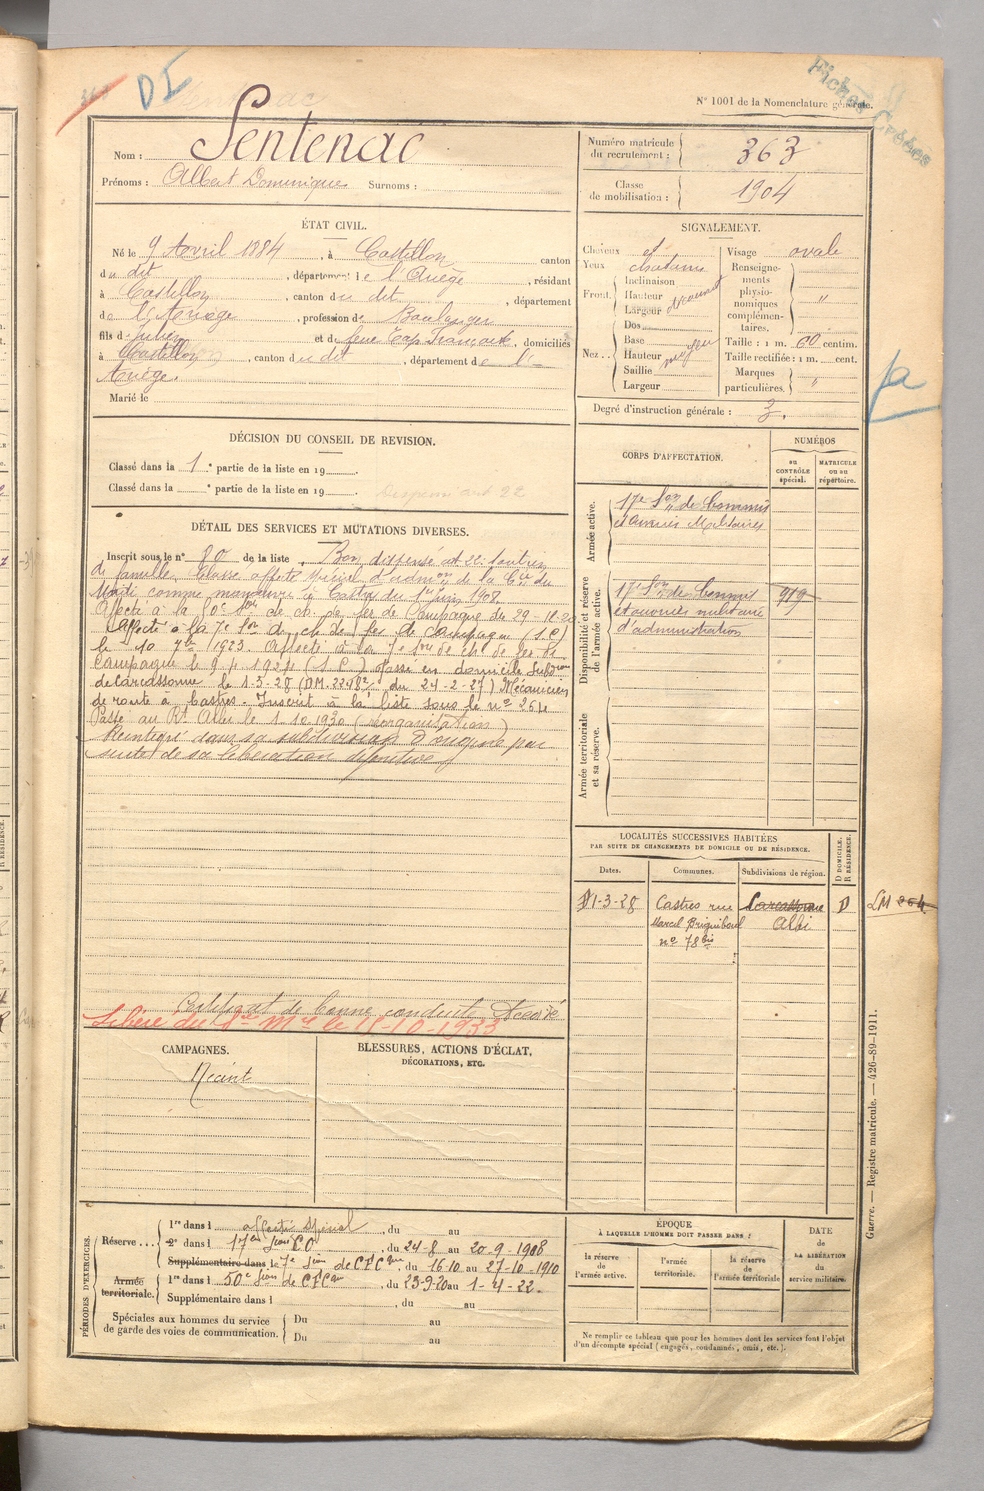 DI
N° 1001 de la Nomenclature générale.
Fiches Créées
Nom : Sentenac
Prénoms : Albert Dominique Surnoms :
Numéro matricule du recrutement : 363
Classe de mobilisation : 1904
ÉTAT CIVIL.
Né le 9 Avril 1884, à Castillon, canton
du dit, département de l'Ariège, résidant
à Castillon, canton du dit, département
de l'Ariège, profession de Boulanger
fils de Julien et de feue Cap Françoise, domiciliés
à Castillon, canton du dit, département de l'
Ariège.
Marié le
SIGNALEMENT.
Cheveux et
Yeux chatains
Front. Inclinaison
Hauteur
Largeur
Nez... Dos
Base
Hauteur moyen
Saillie
Largeur
Visage ovale
Renseignements physionomiques complémentaires. "
Taille : 1 m. 60 centim.
Taille rectifiée : 1 m. cent.
Marques particulières. "
Degré d'instruction générale : 3.
DÉCISION DU CONSEIL DE REVISION.
Classé dans la 1e partie de la liste en 19
Classé dans la e partie de la liste en 19
CORPS D'AFFECTATION.
NUMÉROS
au CONTRÔLE spécial.
MATRICULE ou au répertoire.
Armée active.
17e Son de Commis
et Ouvriers Militaires
Disponibilité et réserve de l'armée active.
17e Son de Commis 919
et ouvriers militaire
d'administration
Armée territoriale et sa réserve.
DÉTAIL DES SERVICES ET MUTATIONS DIVERSES.
Inscrit sous le n° 80 de la liste. Bon dispensé art 22. Soutien
de famille. Classé affecté spécial d'admon de la Cie du
Midi comme manœuvre à Castres du 1er Juin 1908.
Affecté à la 50e Son de ch. de fer de Campagne du 29-12-20
Affecté à la 7e Son de ch de fer de campagne (S.C)
le 10 7bre 1923. Affecté à la 7e Son de ch. de fer de
campagne le 9 4 1924 (S.C) Passé en domicile Subdion
de Carcassonne le 1-3-28 du 24-2-27) Mécanicien
de route à Castres. Inscrit à la liste sous le n° 264
Passé au Rt Albi le 1.10.1930 (réorganisation)
Réintégré dans sa subdivision d'origine par
suite de sa libération définitive
Certificat de bonne conduite Accordé
Libéré du Sce Mre le 11-10-1933
LOCALITÉS SUCCESSIVES HABITÉES
PAR SUITE DE CHANGEMENTS DE DOMICILE OU DE RÉSIDENCE.
Dates. Communes. Subdivisions de région. D DOMICILE. R RÉSIDENCE.
1-3-28 Castres rue Carcassonne D LM 264
Marcel Briguiboul Albi
n° 78 bis
CAMPAGNES.
Néant
BLESSURES, ACTIONS D'ÉCLAT,
DÉCORATIONS, ETC.
PÉRIODES D'EXERCICES.
Réserve... 1re dans l affecté spécial, du au
2e dans l 17e Son C O, du 24-8 au 20-9-1908
Supplémentaire dans le 7e Son de CFCgne, du 16 10 au 27-10-1910
Armée territoriale. 1re dans l 50e Son de CFCgne, du 23-9-20 au 1-4-22.
Supplémentaire dans l, du au
Spéciales aux hommes du service Du au
de garde des voies de communication. Du au
ÉPOQUE
À LAQUELLE L'HOMME DOIT PASSER DANS :
la réserve de l'armée active.
l'armée territoriale.
la réserve de l'armée territoriale
DATE de LA LIBÉRATION du service militaire.
Ne remplir ce tableau que pour les hommes dont les services font l'objet
d'un décompte spécial (engagés, condamnés, omis, etc.).
Guerre. — Registre matricule. — 426-89-1911.